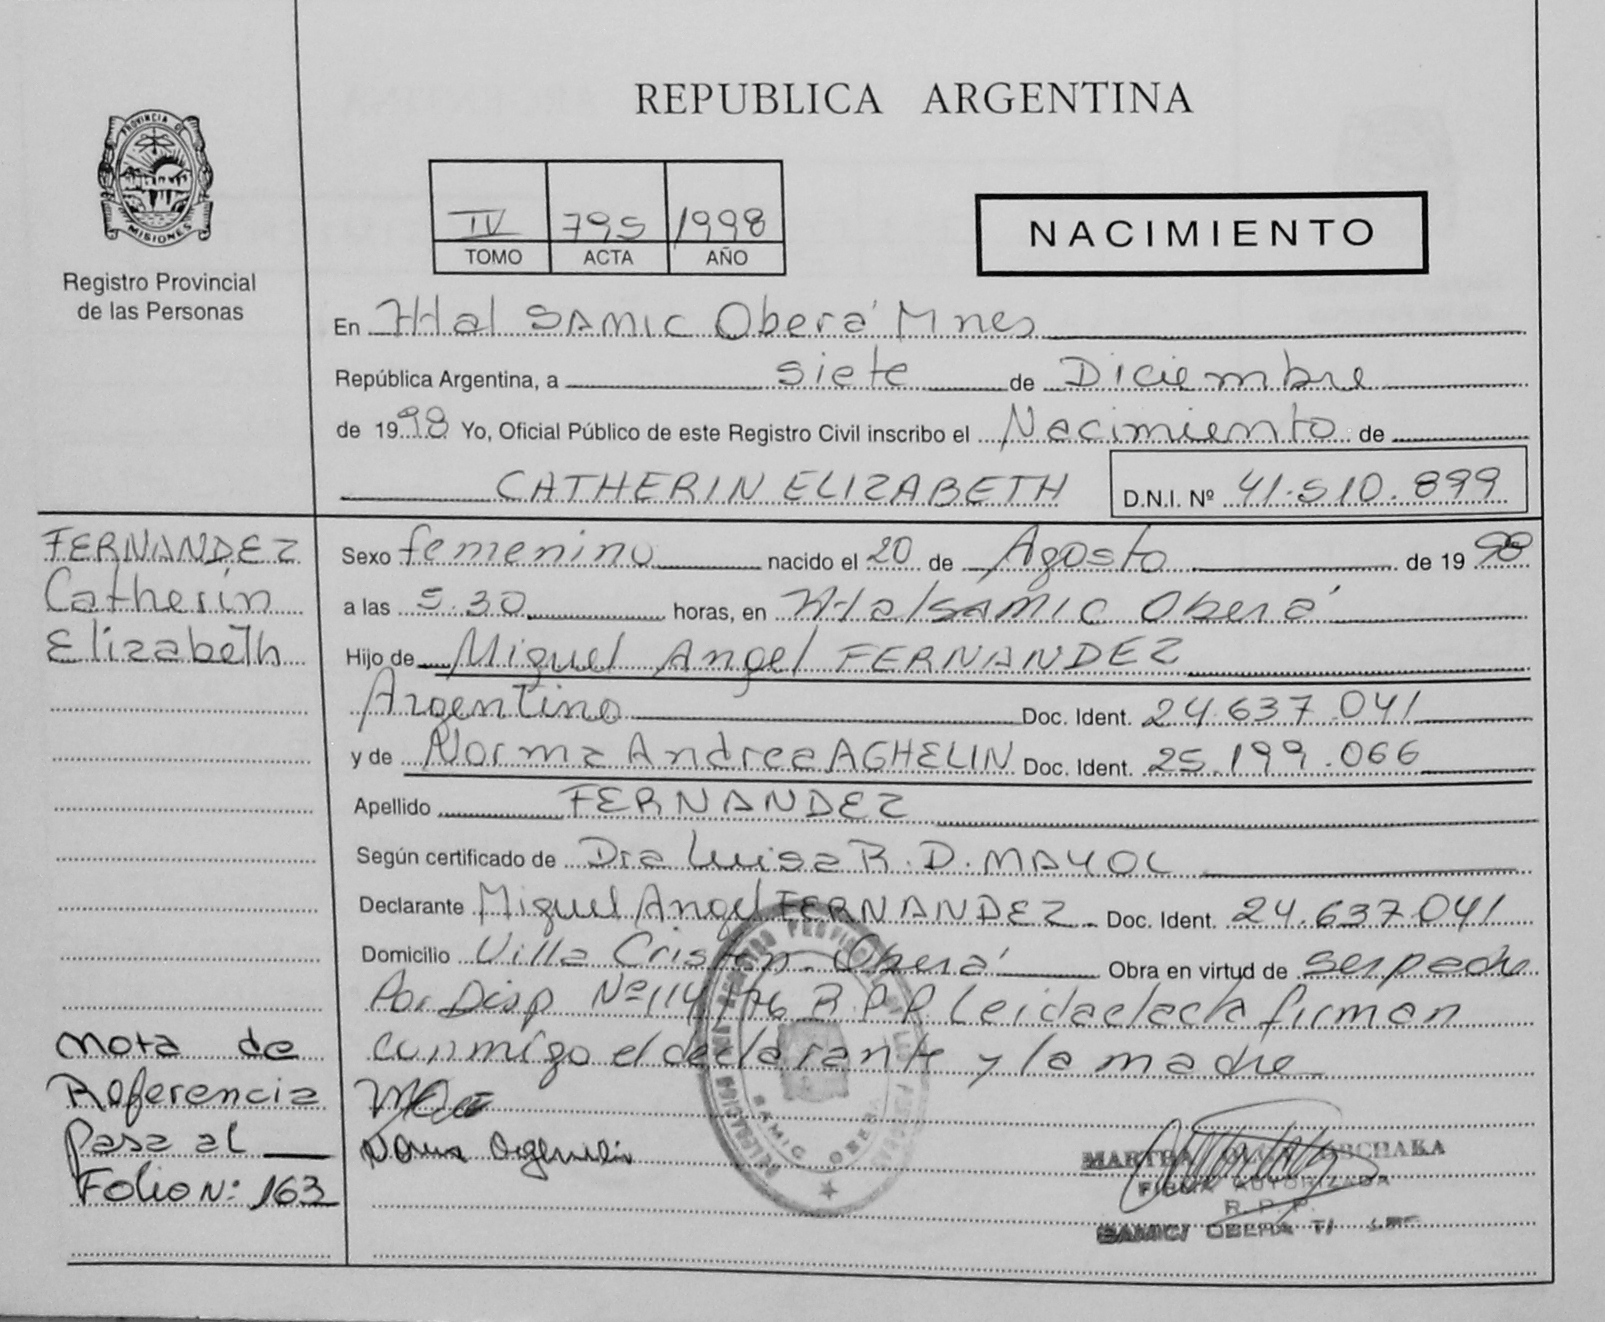 REPUBLICA ARGENTINA
PROVINCIA DE
MISIONES
Registro Provincial
de las Personas
IV 795 1998
TOMO ACTA AÑO
NACIMIENTO
En Htal SAMIC Oberá Mnes
República Argentina, a siete de Diciembre
de 1998 Yo, Oficial Público de este Registro Civil inscribo el Nacimiento de
CATHERIN ELIZABETH D.N.I. Nº 41.510.899
FERNANDEZ
Catherin
Elizabeth
Sexo femenino nacido el 20 de Agosto de 1998
a las 5.30 horas, en Htal SAMIC Oberá
Hijo de Miguel Angel FERNANDEZ
Argentino Doc. Ident. 24.637.041
y de Norma Andrea AGHELIN Doc. Ident. 25.199.066
Apellido FERNANDEZ
Según certificado de Dra Luisa R. D. MAYOL
Declarante Miguel Angel FERNANDEZ Doc. Ident. 24.637.041
Domicilio Villa Cristen Oberá Obra en virtud de ser padre
Por Disp Nº 114/76 R.P.P. Leida el acta firman
conmigo el declarante y la madre
Nota de
Referencia
Pasa al
Folio Nº 163
MARTHA
FIRMA AUTORIZADA
R.P.P.
SAMIC/ OBERA
SAMIC OBERA